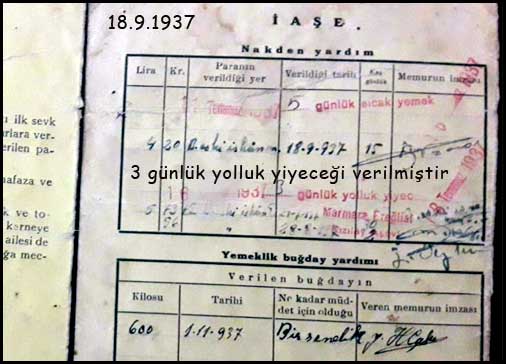 18.9.1937
İAŞE.
Nakden yardım
Lira Kr. Paranın verildiği yer Verildiği tarih Kaç günlük Memurun imzası
Temmuz 1937 5 günlük sıcak yemek
4 20 18-9-937 15
3 günlük yolluk yiyeceği verilmiştir
1937 3 günlük yolluk yiyec
Temmuz 1937
5 Marmara Ereğlisi
Yemeklik buğday yardımı
Verilen buğdayın
Kilosu Tarihi Ne kadar müddet için olduğu Veren memurun imzası
600 1-11-937 Bir senelik
ı ilk sevk
arlara ver-
erilen pa-
afaza ve
k ve to-
karneye
ailesi de
ğa mec-